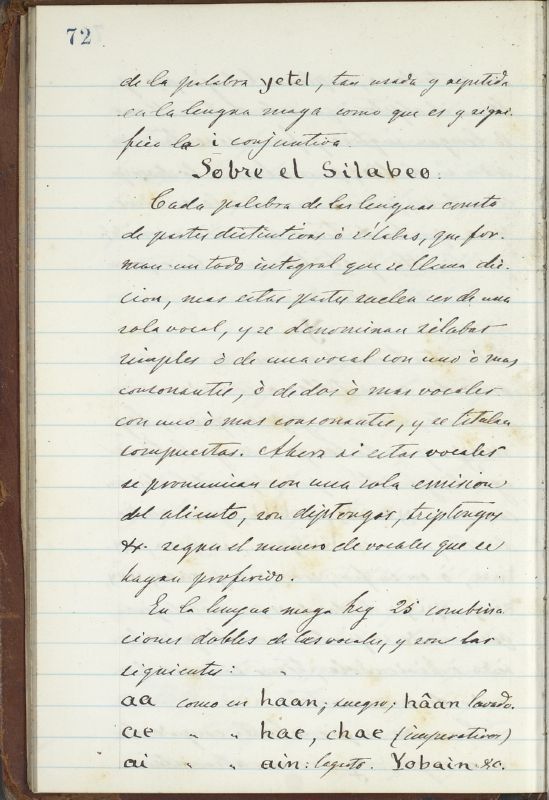 72
de la palabra yetel, tan usada y repetida
en la lengua maya como que es y signi-
fica la i conjuntiva.
Sobre el Silabeo.
Cada palabra de las lenguas consta
de partes distintivas ò sílabas, que for-
man un todo integral que se llama dic-
cion, mas estas partes suelen ser de una
sola vocal, y se denominan sílabas
simples ò de una vocal con uno ò mas
consonantes, ò de dos ò mas vocales
con uno ò mas consonantes, y se titulan
compuestas. Ahora si estas vocales
se pronuncian con una sola emision
del aliento, son diptongos, triptongos
&. segun el numero de vocales que se
hayan proferido.
En la lengua maya hay 25 combina
ciones dobles de las vocales, y son las
siguientes:
aa como en haan; suegro; hâan lavado.
ae " " hae, chae (imperativos)
ai " " ain: lagarto. Yobain &c.